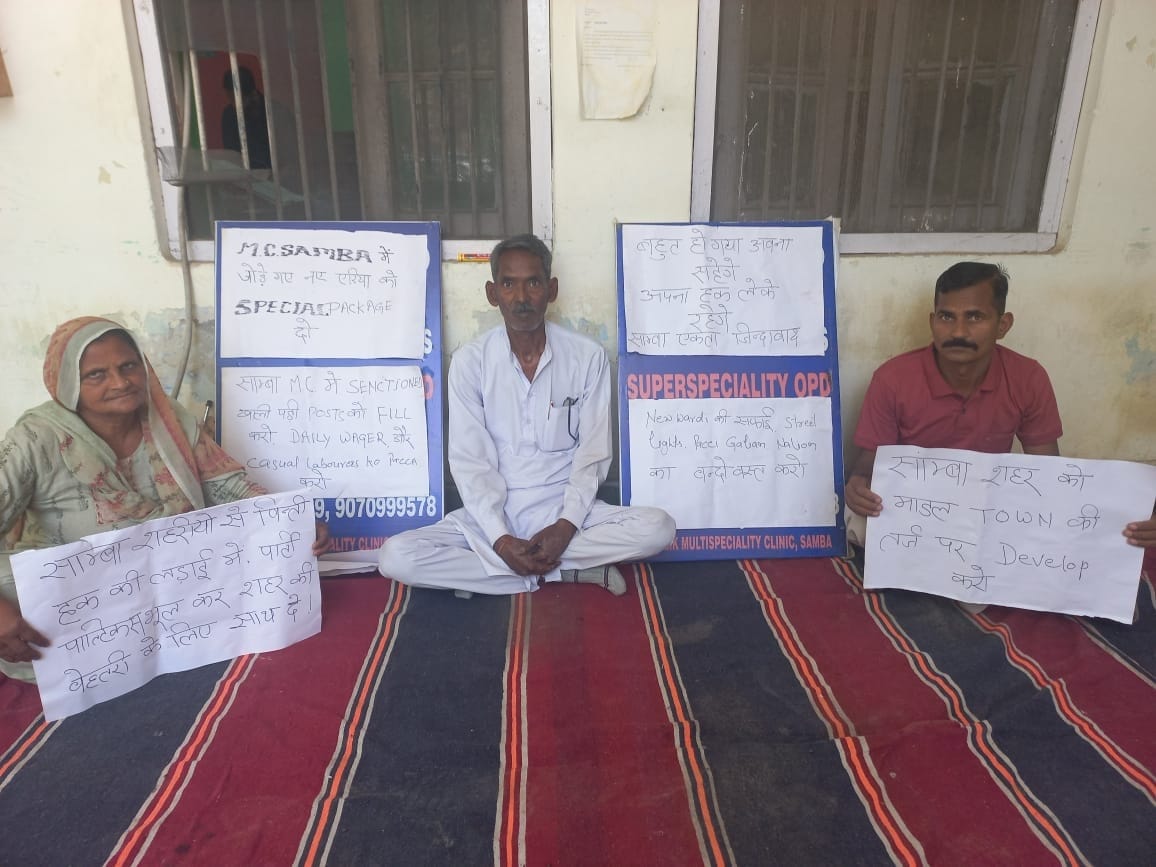 M.C. SAMBA में
जोड़े गए नए एरिया को
SPECIAL PACKAGE
दो
साम्बा M.C में SENCTIONED
खाली पड़ी POSTS को FILL
करो DAILY WAGER और
Casual Labourers ko Pacca
करो
9, 9070999578
ALITY CLINIC
बहुत हो गया अब ना
सहेगे
अपना हक लेके
रहेगे
साम्बा एकता जिन्दाबाद
SUPERSPECIALITY OPD
New wards की सफाई, street
lights, Pacci Galian Nalion
का बन्दोबस्त करो
MULTISPECIALITY CLINIC, SAMBA
साम्बा शहरीयो से विनती
हक की लडाई में, पार्टी
पाल्टिक्स भूल कर शहर की
बेहतरी के लिए साथ दे।
साम्बा शहर को
माडल TOWN की
तर्ज पर Develop
करो